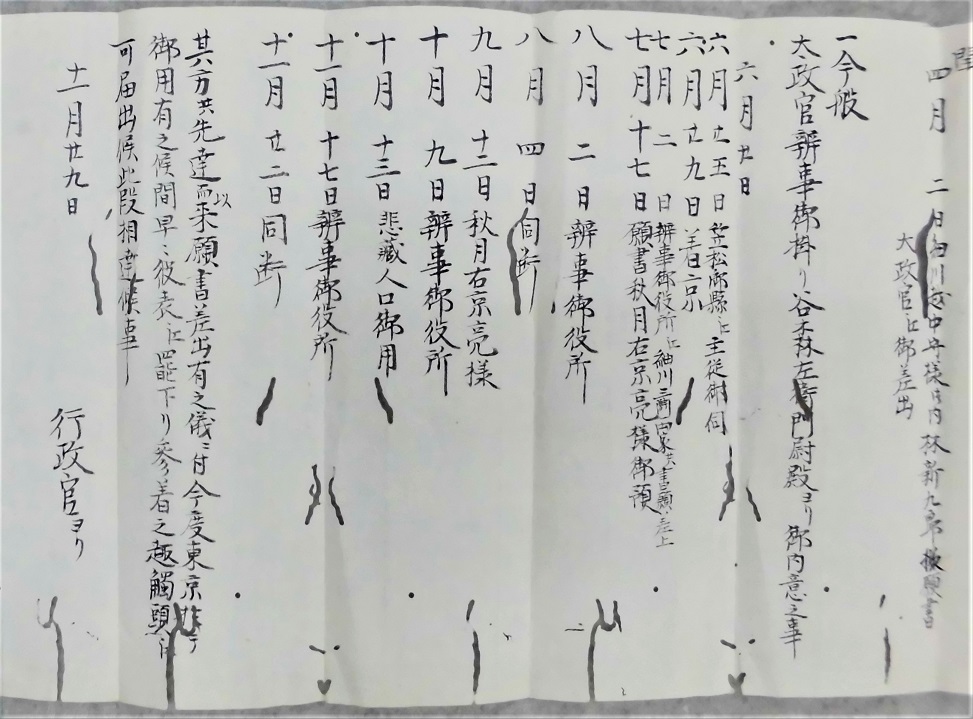 閏
四月 二日細川越中守様内林新九郎歎願書
太政官江御差出
一今般
太政官辨事御掛り谷森左衛門尉殿ヨリ御内意之事
六月廿日
六月廿五日笠松郷縣江主従御伺
六月廿九日着京
七月二日辨事御役所江
七月十七日願書秋月右京亮様御預
八月二日辨事御役所
八月四日同断
九月十二日秋月右京亮様
十月九日辨事御役所
十月十三日悲蔵人口御用
十一月十七日辨事御役所
十一月廿二日同断
其方共先達而以来願書差出有之儀ニ付今度東京於テ
御用有之候間早々彼表江罷下り参着之趣觸頭江
可届出候此段相達候事
十一月廿九日
行政官ヨリ